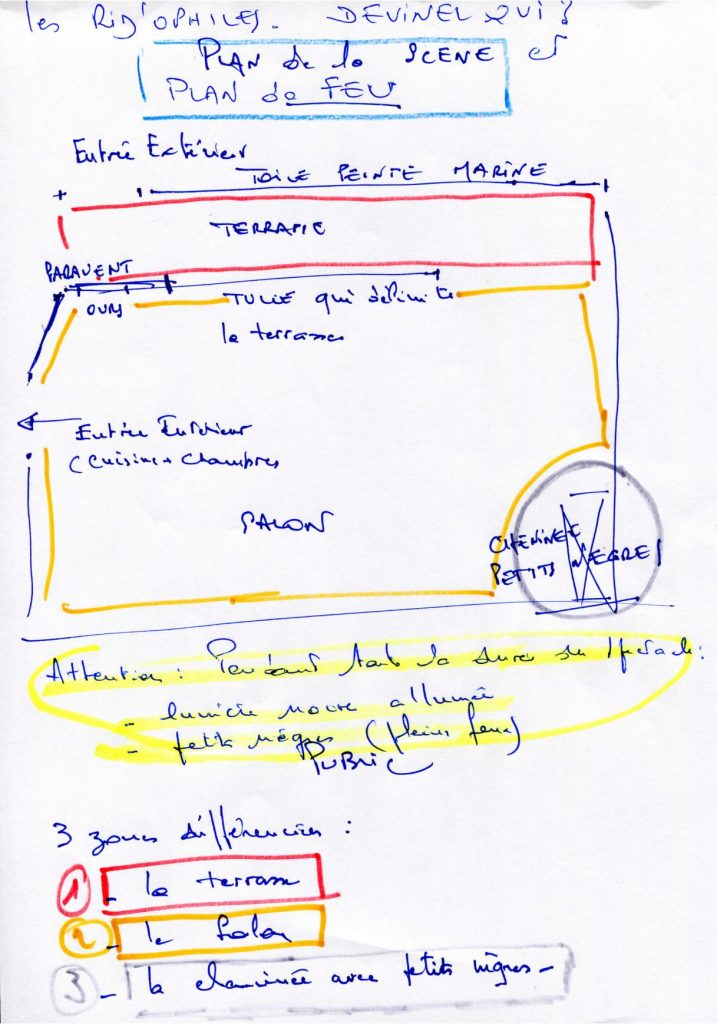 les RIG'OPHILES. DEVINEZ QUI?
PLAN de la SCENE et
PLAN de FEU
Entrée Extérieur
TOILE PEINTE MARINE
TERRASSE
PARAVENT
OURS
TULLE qui délimite
la terrasse
Entrée Intérieur
(Cuisine + Chambres
SALON
CHEMINEE
PETITS NEGRES
Attention : Pendant toute la durée du spectacle :
- lumière noire allumée
- petits nègres (pleins feux)
PUBLIC
3 zones différenciées :
1 - la terrasse
2 - le salon
3 - la cheminée avec petits nègres -